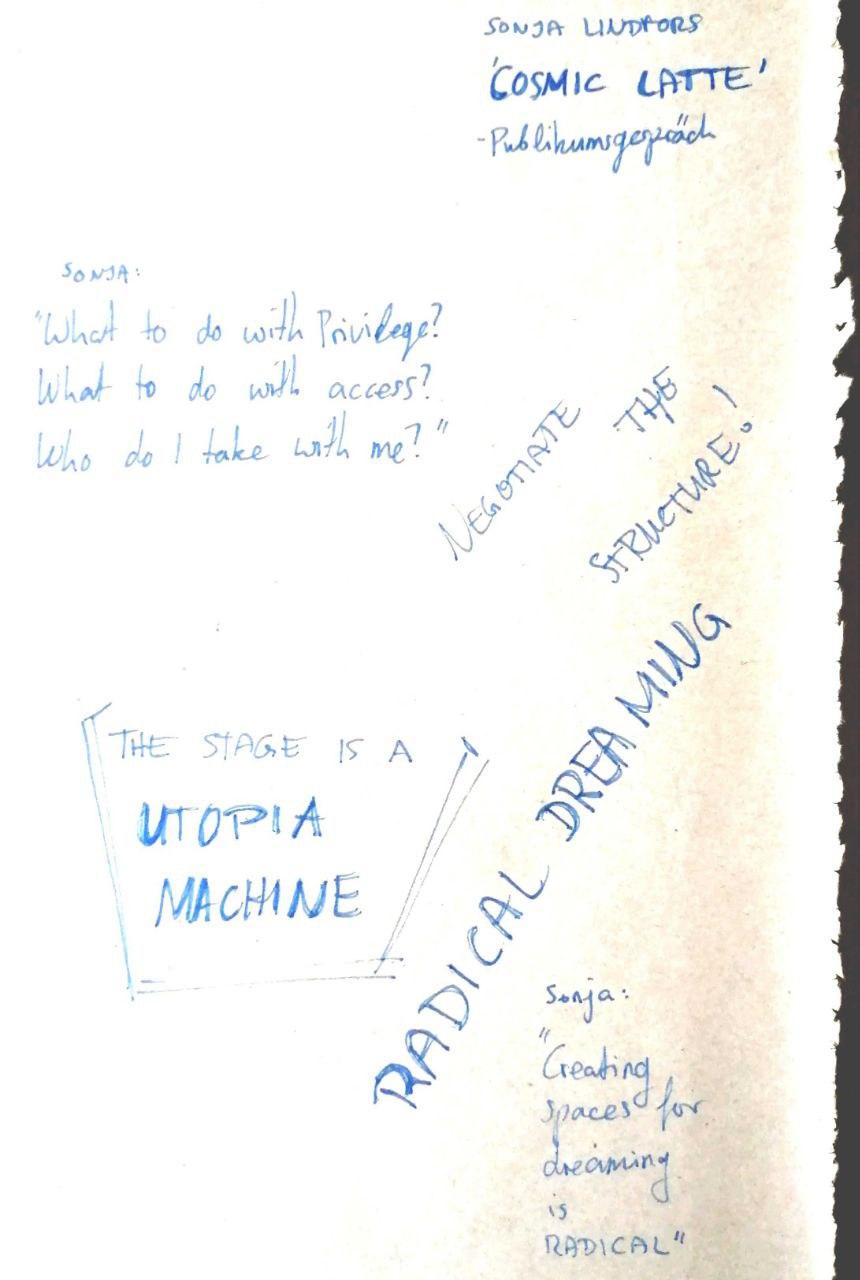 SONJA LINDFORS
'COSMIC LATTE'
-Publikumsgespräch
SONJA:
"What to do with Privilege?
What to do with access?
Who do I take with me?"
NEGOTIATE THE
STRUCTURE!
RADICAL DREAMING
THE STAGE IS A
UTOPIA
MACHINE
Sonja:
"Creating
spaces for
dreaming
is
RADICAL"